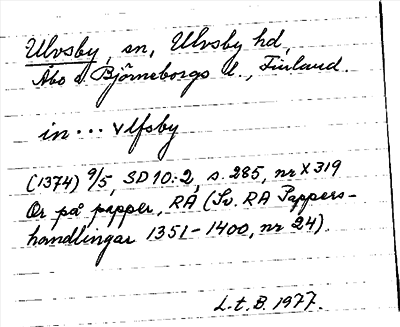 Ulvsby, sn, Ulvsby hd,
Åbo o. Björneborgs l., Finland.
in ... vlfsby
(1374) 9/5, SD 10:2, s. 285, nr X 319
Or på papper, RA (Sv. RA Pappers-
handlingar 1351-1400, nr 24).
L.t.B. 1977.